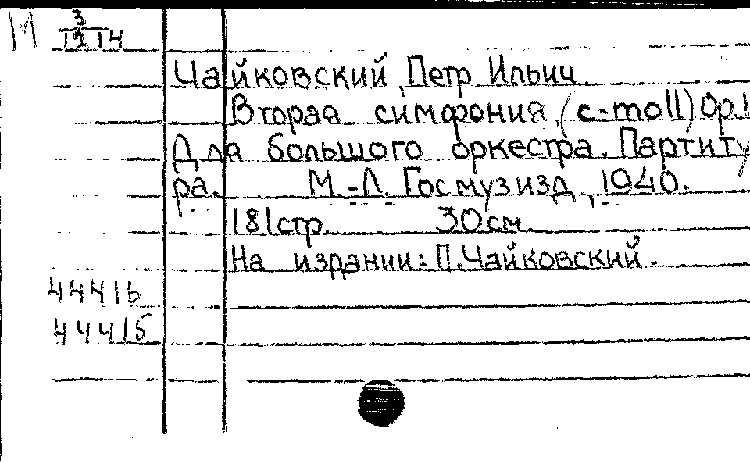 М 3
1214
Чайковский, Петр Ильич.
Вторая симфония, (c-moll) Op.1
Для большого оркестра. Партиту
ра. М.-Л. Госмузизд, 1940.
181стр. 30см.
На издании: П. Чайковский.
44416
44415